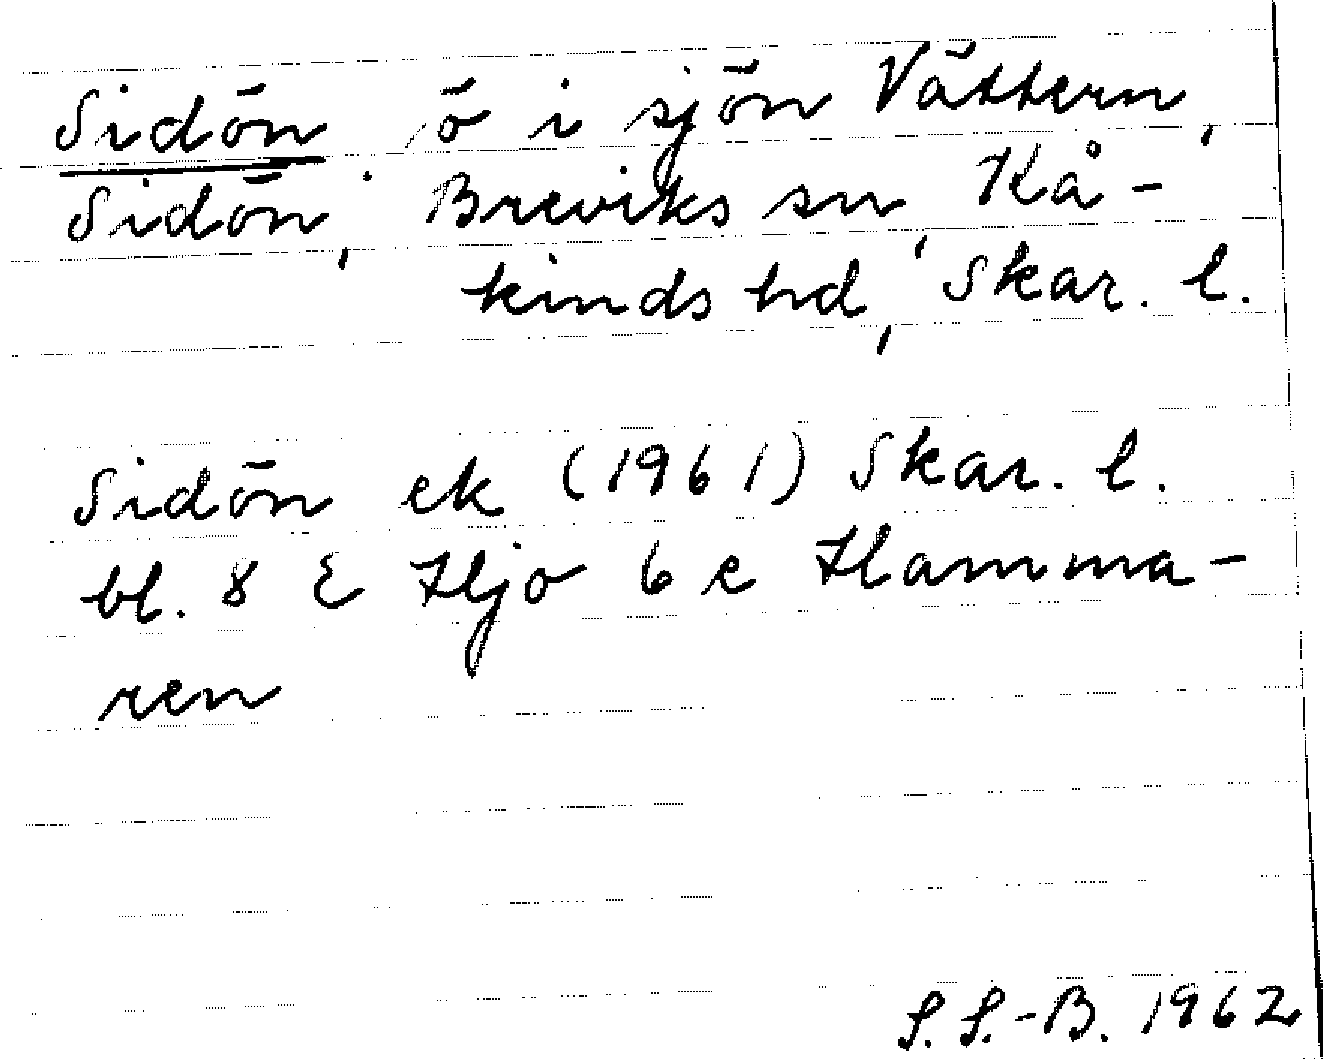 Sidön, ö i sjön Vättern,
Sidön, Breviks sn, Kå-
kinds hd, Skar. l.
Sidön ek (1961) Skar. l.
bl. 8 E Hjo 6 e Hamma-
ren
S. S.-B. 1962